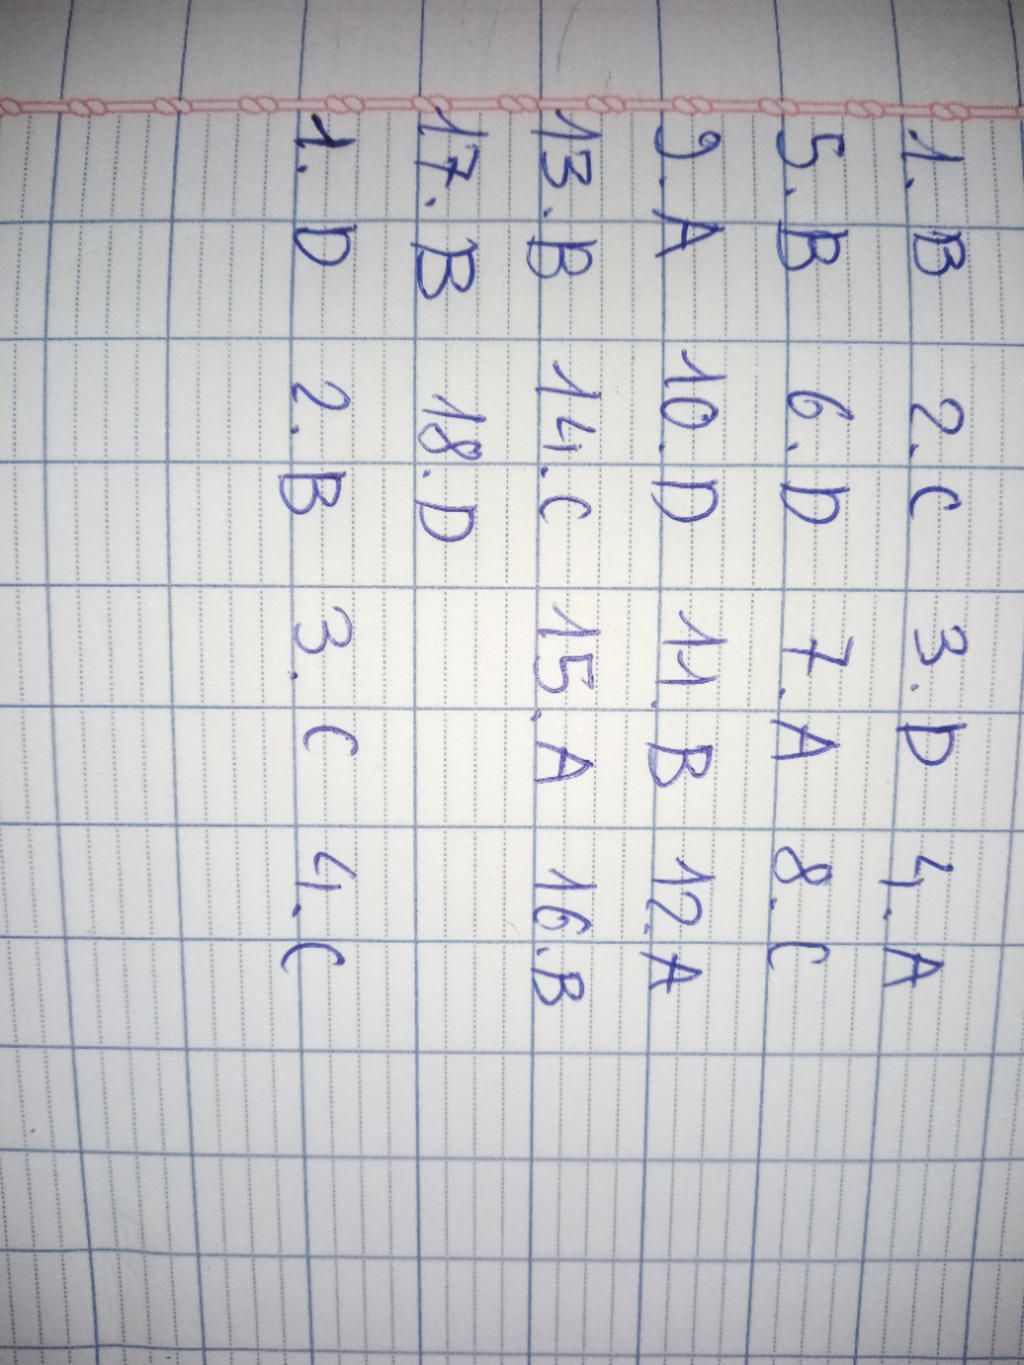 1. B 2. C 3. D 4. A
5. B 6. D 7. A 8. C
9. A 10. D 11. B 12. A
13. B 14. C 15. A 16. B
17. B 18. D
1. D 2. B 3. C 4. C